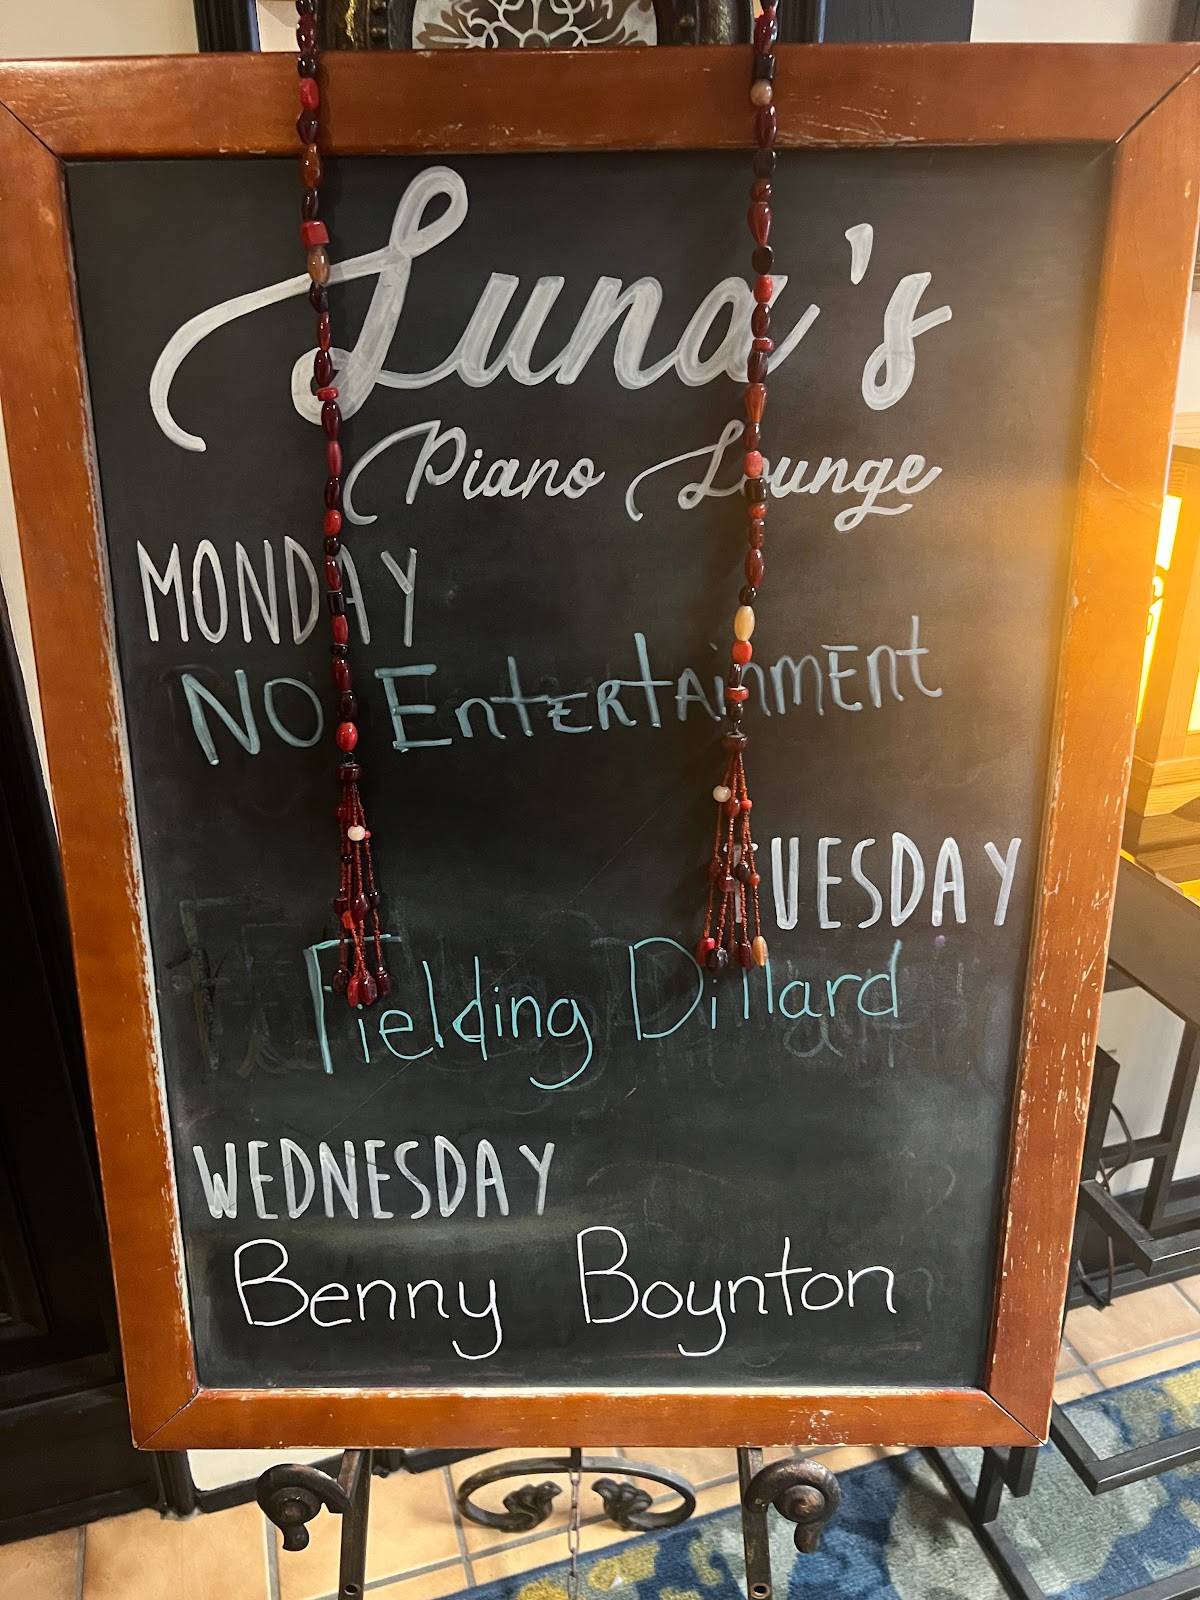 Luna's
Piano Lounge
MONDAY
NO EntERtAinmEnt
TUESDAY
Fielding Dillard
WEDNESDAY
Benny Boynton